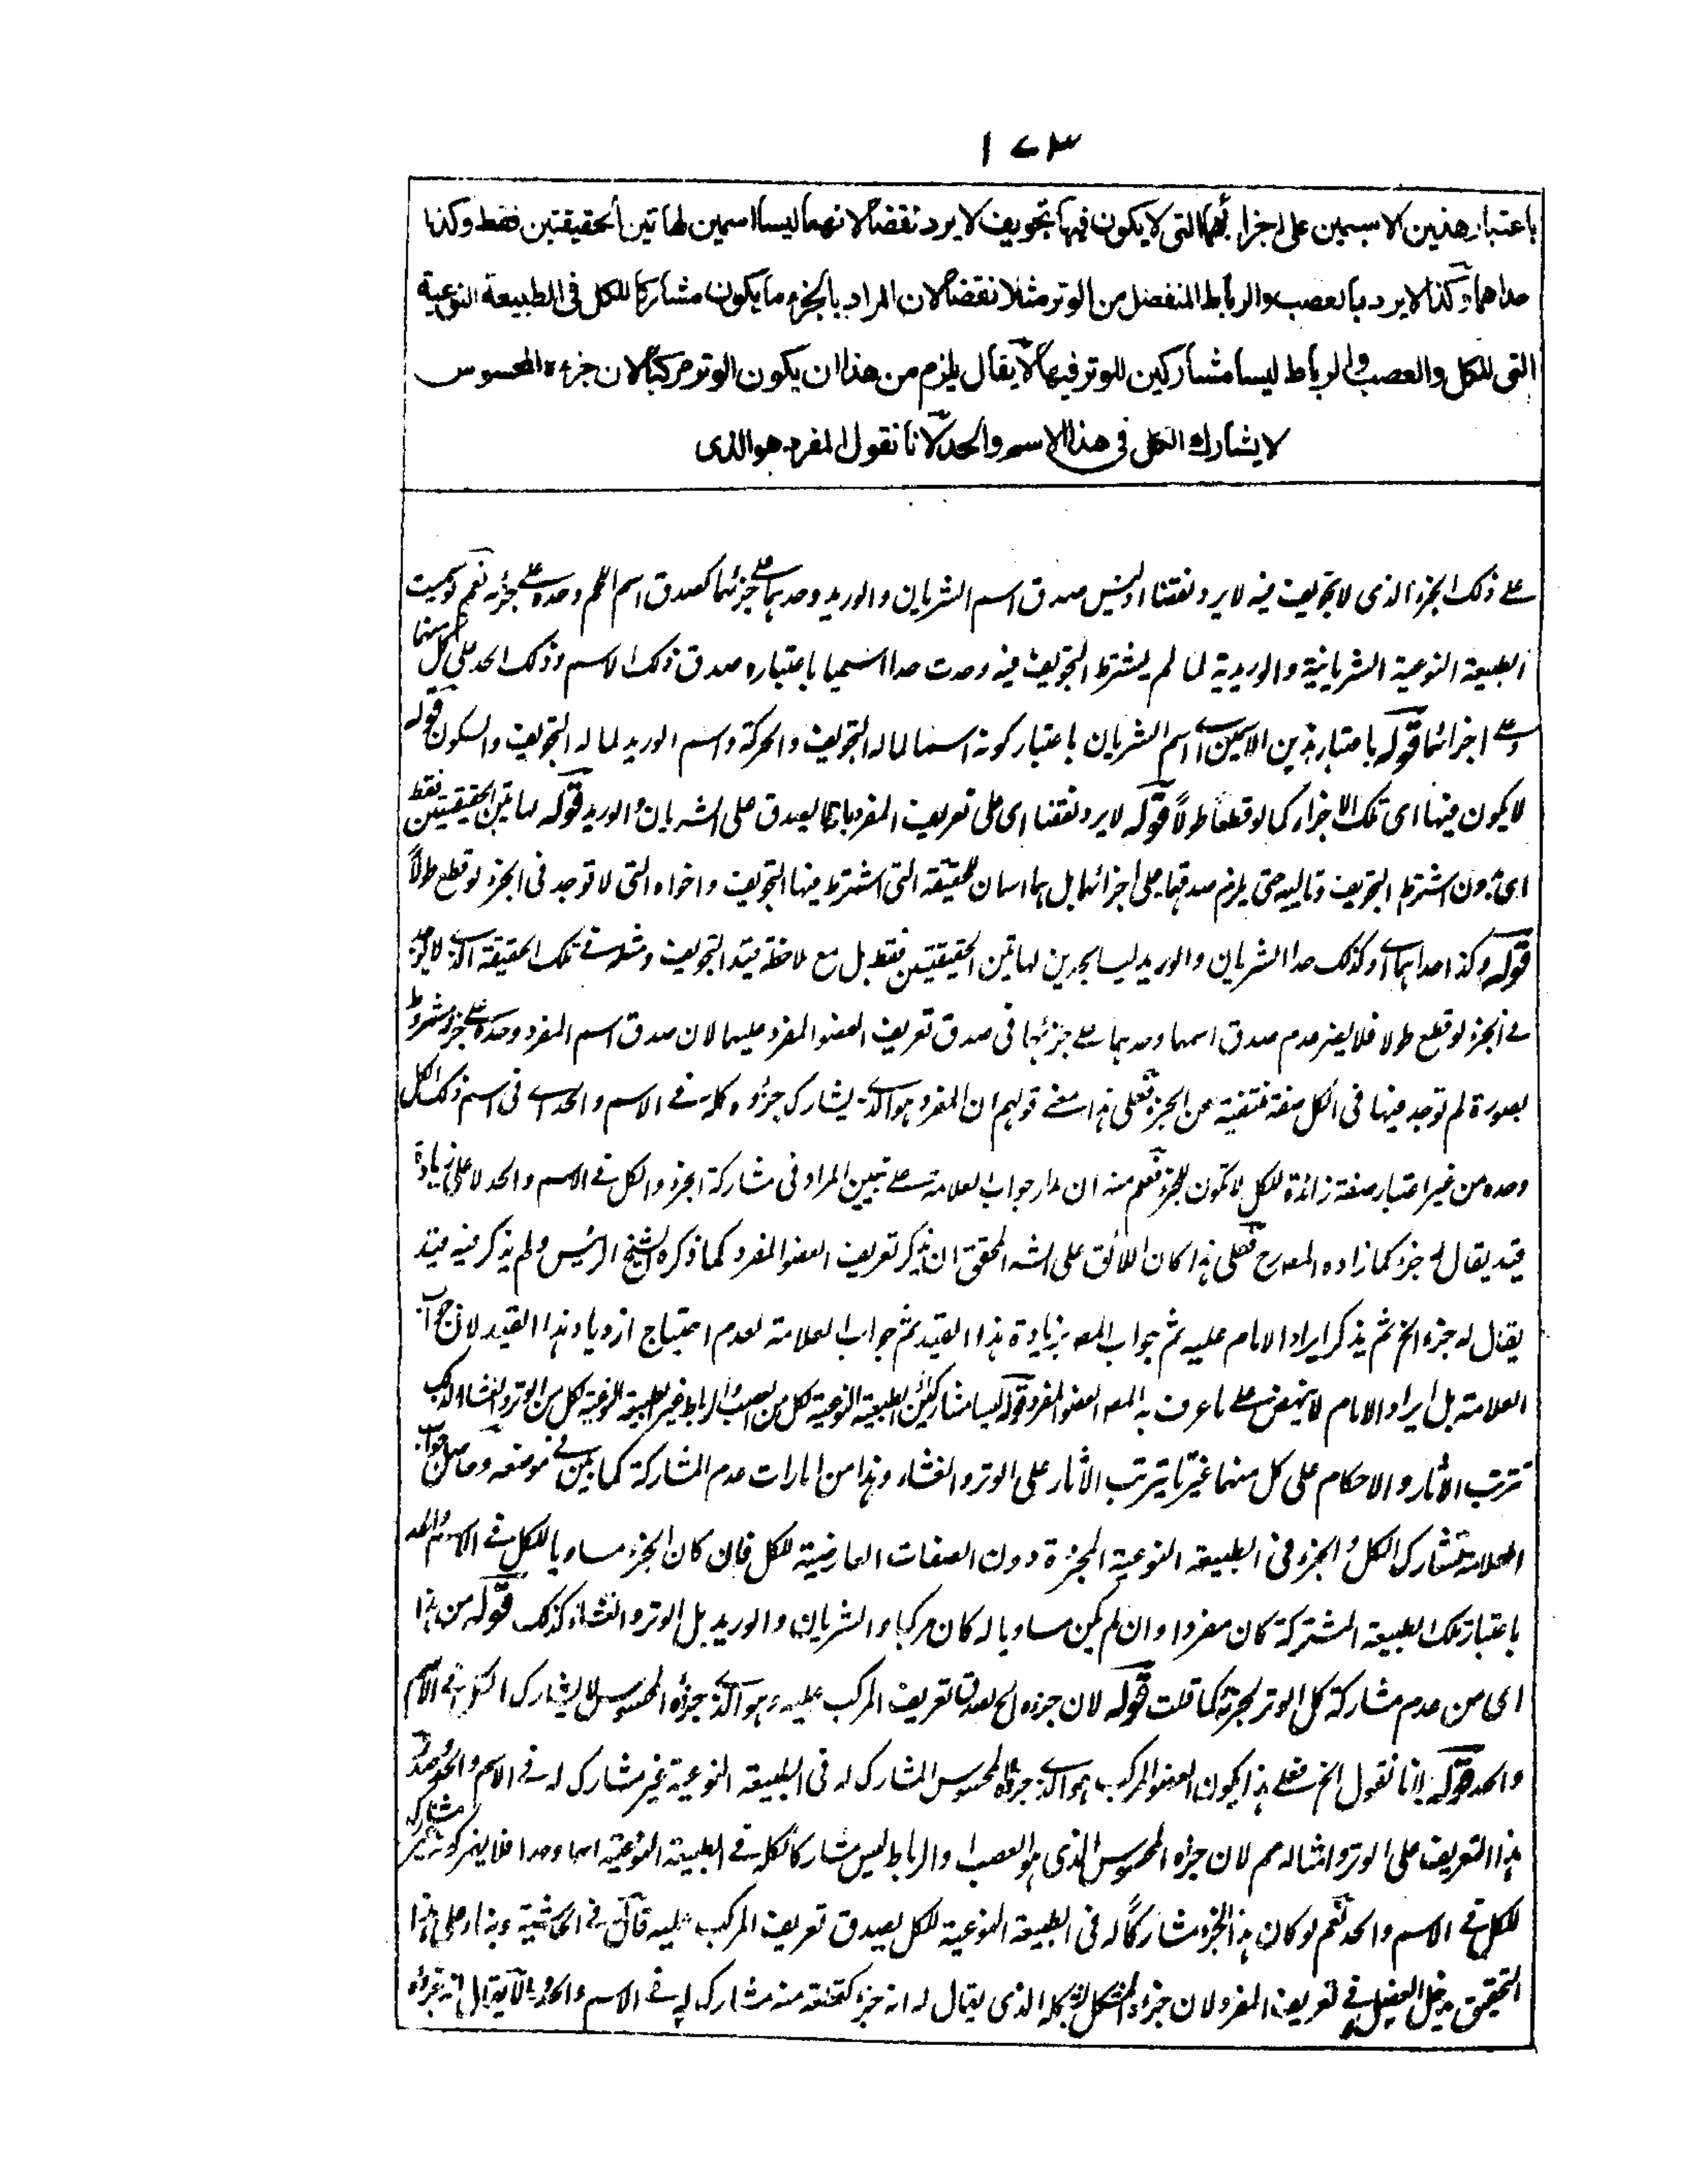 ١٧٣
باعتبار هذين الاسمين على اجزائهما التى لا يكون فيها تجويف لا يرد نقضا لانهما ليسا اسمين لهاتين الحقيقتين فقط وكذا
حداهما وكذا لا يرد بالعصب والرباط المنفصل من الوتر مثلا نقضا لان المراد بالجزء ما يكون مشاركا للكل فى الطبيعة النوعية
التى للكل والعصب والرباط ليسا مشاركين للوتر فيها لا يقال يلزم من هذا ان يكون الوتر مركبا لان جزءه المحسوس
لا يشارك الكل فى هذا الاسم والحد لانا نقول المفرد هو الذى
على ذلك الجزء الذى لا تجويف فيه لا يرد نقضا اذ ليس صدق اسم الشريان والوريد وحدهما على جزئهما كصدق اسم اللحم وحده على جزئه نعم لو سميت
الطبيعة النوعية الشريانية والوريدية لما لم يشترط التجويف فيه وحدت حدا اسميا باعتباره صدق ذلك الاسم وذلك الحد على كل منهما
وعلى اجزائهما قوله باعتبار هذين الاسمين اى اسم الشريان باعتبار كونه اسما لما له التجويف والحركة واسم الوريد لما له التجويف والسكون قوله
لا يكون فيها اى تلك الاجزاء كما لو قطعا طولاً قوله لا يرد نقضا اى على تعريف المفرد بانه لا يصدق على الشريان والوريد قوله لهاتين الحقيقتين فقط
اى بدون اشتراط التجويف وتاليه حتى يلزم صدقهما على اجزائهما بل هما اسمان للحقيقة التى اشترط فيها التجويف واخواه التى لا توجد فى الجزء لو قطع طولاً
قوله وكذا حداهما اى وكذلك حدا الشريان والوريد ليسا بحدين لهاتين الحقيقتين فقط بل مع ملاحظة قيد التجويف ومثله فى تلك الحقيقة الذى لا يوجد
فى الجزء لو قطع طولا فلا يضر عدم صدق اسمهما وحديهما على جزئهما فى صدق تعريف العضو المفرد عليهما لان صدق اسم المفرد وحده على جزئه مشروط
بصورة لم توجد فيها فى الكل صفة منتفية عن الجزء فعلى هذا معنى قولهم ان المفرد هو الذى يشارك جزؤه كله فى الاسم والحد اى فى اسم ذلك الكل
وحده من غير اعتبار صفة زائدة للكل لا تكون للجزء فعلم منه ان مدار جواب العلامة على تبيين المراد فى مشاركة الجزء والكل فى الاسم والحد لا على زيادة
قيد يقال له جزء كما زاده المصرح فعلى هذا كان اللائق على الشه المحقق ان يذكر تعريف العضو المفرد كما ذكره الشيخ الرئيس ولم يذكر فيه قيد
يقال له جزء الخ ثم يذكر ايراد الامام عليه ثم جواب المصه بزيادة هذا القيد ثم جواب العلامة لعدم احتياج ازدياد هذا القيد لان جواب
العلامة بل ايراد الامام لا ينهض على ما عرف به المصه العضو المفرد قوله ليسا مشاركين الطبيعة النوعية لكل من العصب والرباط غير الطبيعة النوعية لكل من الوتر والغشاء لذلك
ترتب الاثار والاحكام على كل منهما غير ما يترتب الاثار على الوتر والغشاء وهذا من امارات عدم المشاركة كما بين فى موضعه وحاصل جواب
العلامة تشارك الكل والجزء فى الطبيعة النوعية المجردة دون الصفات العارضية للكل فان كان الجزء مساويا للكل فى الاسم والحد
باعتبار تلك الطبيعة المشتركة كان مفردا وان لم يكن مساويا له كان مركبا والشريان والوريد بل الوتر والغشاء كذلك قوله من هذا
اى من عدم مشاركة كل الوتر لجزئه كما قلت قوله لان جزءه الخ يصدق تعريف المركب عليه وهو الذى جزؤه المحسوس لا يشارك الكل فى الاسم
والحد قوله لانا نقول الخ فعلى هذا يكون العضو المركب هو الذى جزؤه المحسوس المشارك له فى الطبيعة النوعية غير مشارك له فى الاسم والحد وصدق
هذا التعريف على الوتر وامثاله مم لان جزءه المحسوس الذى هو العصب والرباط ليس مشاركا لكله فى الطبيعة النوعية اسما وحدا فلا يضر كونه غير مشارك
للكل فى الاسم والحد نعم لو كان هذا الجزء مشاركاً له فى الطبيعة النوعية للكل يصدق تعريف المركب عليه قال فى الحاشية وبناء على هذا
التحقيق يدخل العضل فى تعريف المفرد لان جزء الشكل بكله الذى يقال له انه جزء كقطعة منه مشارك له فى الاسم والحد لا يقال انه جزؤه